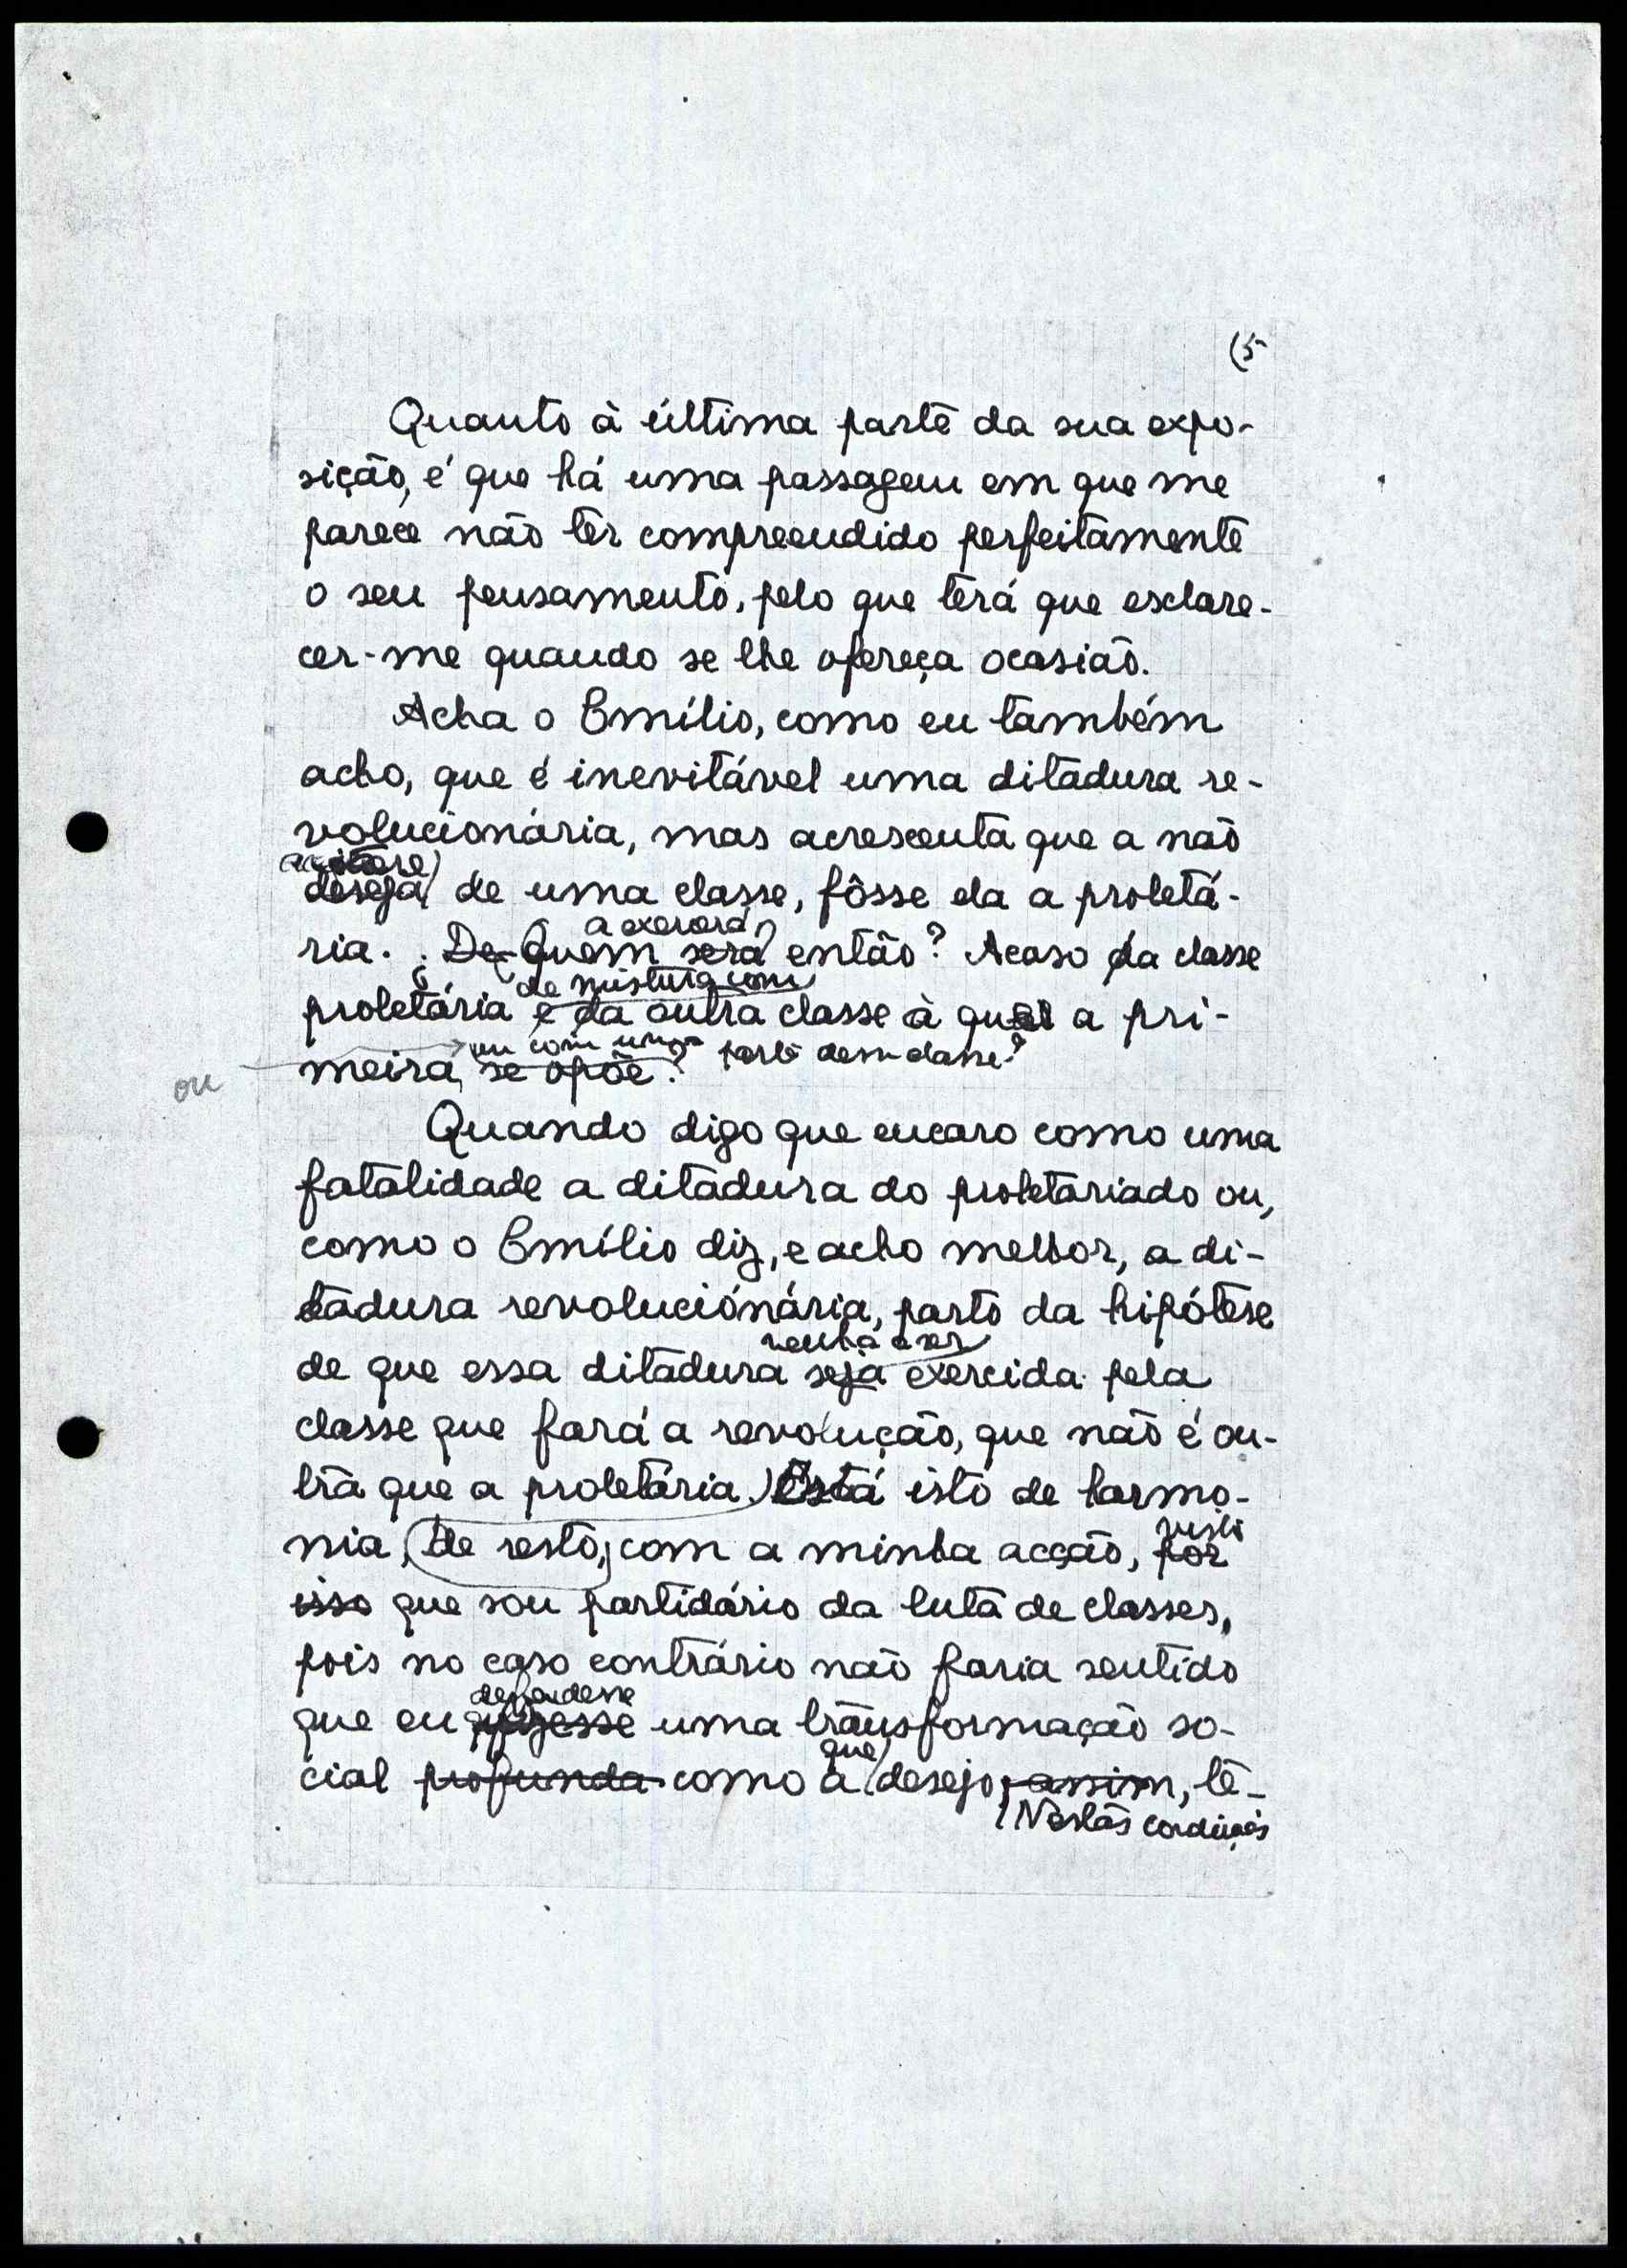 (5
Quanto à última parte da sua expo-
sição, é que há uma passagem em que me
parece não ter compreendido perfeitamente
o seu pensamento, pelo que terá que esclare-
cer-me quando se lhe ofereça ocasião.
Acha o Emílio, como eu também
acho, que é inevitável uma ditadura re-
volucionária, mas acrescenta que a não
deseja de uma classe, fôsse ela a proletá-
a exercerá
ria. De Quem será então? Acaso da classe
de mistura com
proletária e da outra classe à qual a pri-
ou com uma parte dessa classe?
meira se opõe?
ou
Quando digo que encaro como uma
fatalidade a ditadura do proletariado ou,
como o Emílio diz, e acho melhor, a di-
tadura revolucionária, parto da hipótese
venha a ser
de que essa ditadura seja exercida pela
classe que fará a revolução, que não é ou-
tra que a proletária. Está isto de harmo-
visto
nia, de resto, com a minha acção, por
isso que sou partidário da luta de classes,
pois no caso contrário não faria sentido
defendesse
que eu quizesse uma transformação so-
que
cial profunda como a desejo, assim, tê-
Nestas condições